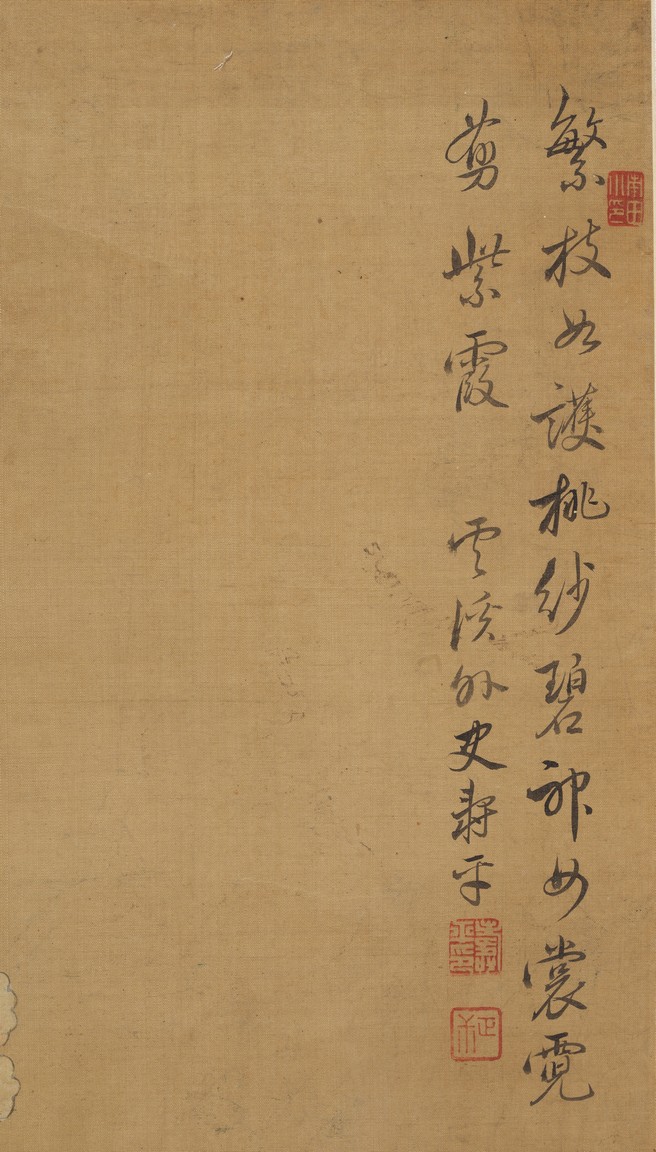 南田小印
繁枝如護桃紗碧神女裳霓
剪紫霞　云溪外史壽平
壽平印
正叔